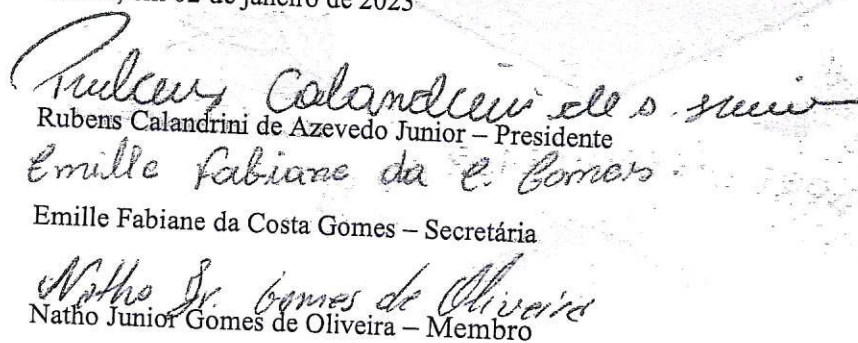 em 02 de janeiro de 2023
Rubens Calandrini de A. Junior
Rubens Calandrini de Azevedo Junior – Presidente
Emille Fabiane da C. Gomes.
Emille Fabiane da Costa Gomes – Secretária
Natho Jr. Gomes de Oliveira
Natho Junior Gomes de Oliveira – Membro